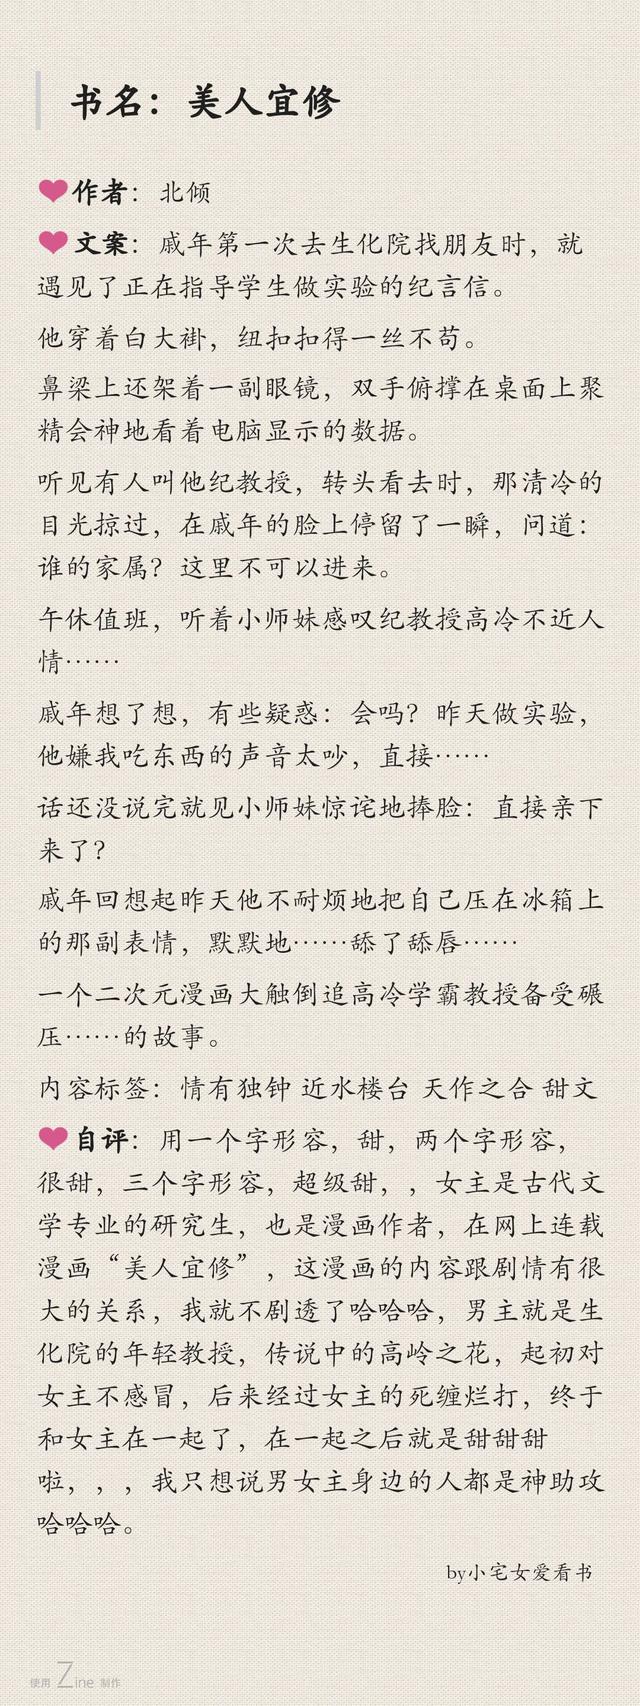 书名：美人宜修
作者：北倾
文案：戚年第一次去生化院找朋友时，就
遇见了正在指导学生做实验的纪言信。
他穿着白大褂，纽扣扣得一丝不苟。
鼻梁上还架着一副眼镜，双手俯撑在桌面上聚
精会神地看着电脑显示的数据。
听见有人叫他纪教授，转头看去时，那清冷的
目光掠过，在戚年的脸上停留了一瞬，问道：
谁的家属？这里不可以进来。
午休值班，听着小师妹感叹纪教授高冷不近人
情……
戚年想了想，有些疑惑：会吗？昨天做实验，
他嫌我吃东西的声音太吵，直接……
话还没说完就见小师妹惊诧地捧脸：直接亲下
来了？
戚年回想起昨天他不耐烦地把自己压在冰箱上
的那副表情，默默地……舔了舔唇……
一个二次元漫画大触倒追高冷学霸教授备受碾
压……的故事。
内容标签：情有独钟 近水楼台 天作之合 甜文
自评：用一个字形容，甜，两个字形容，
很甜，三个字形容，超级甜，，女主是古代文
学专业的研究生，也是漫画作者，在网上连载
漫画“美人宜修”，这漫画的内容跟剧情有很
大的关系，我就不剧透了哈哈哈，男主就是生
化院的年轻教授，传说中的高岭之花，起初对
女主不感冒，后来经过女主的死缠烂打，终于
和女主在一起了，在一起之后就是甜甜甜
啦，，，我只想说男女主身边的人都是神助攻
哈哈哈。
by小宅女爱看书
使用 Zine 制作